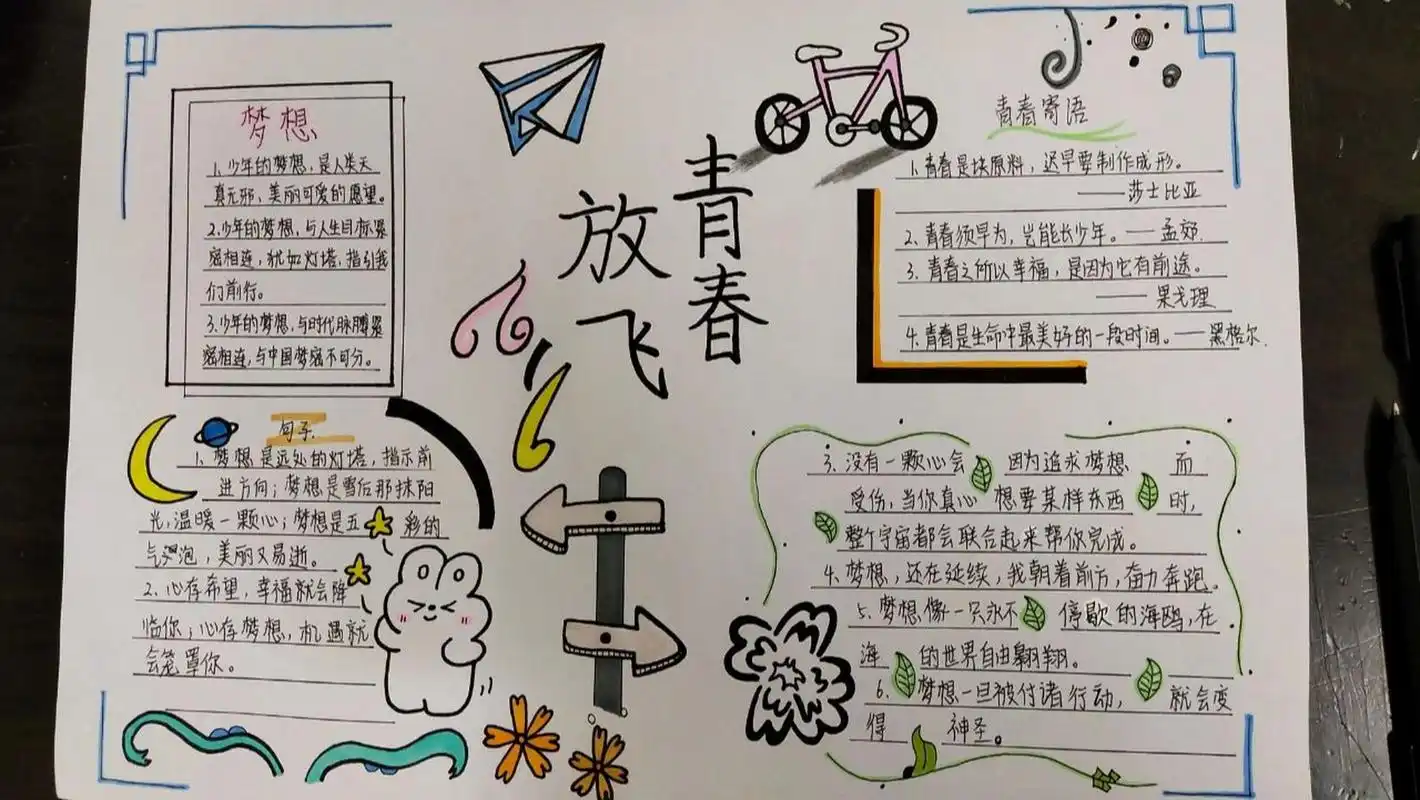 梦想
1、少年的梦想,是人类天
真无邪,美丽可爱的愿望。
2.少年的梦想,与人生目标紧
密相连,犹如灯塔,指引我
们前行。
3.少年的梦想,与时代脉膊紧
密相连,与中国梦密不可分。
放飞
青春
青春寄语
1.青春是块原料,迟早要制作成形。
——莎士比亚
2.青春须早为,岂能长少年。——孟郊.
3.青春之所以幸福,是因为它有前途。
——果戈理
4.青春是生命中最美好的一段时间。——黑格尔.
句子.
1、梦想是远处的灯塔,指示前
进方向;梦想是雪后那抹阳
光,温暖一颗心;梦想是五彩的
气泡,美丽又易逝。
2、心存希望,幸福就会降
临你;心存梦想,机遇就
会笼罩你。
3.没有一颗心会因为追求梦想而
受伤,当你真心想要某样东西时,
整个宇宙都会联合起来帮你完成。
4.梦想,还在延续,我朝着前方,奋力奔跑。
5.梦想像一只永不停歇的海鸥,在
海的世界自由翱翔。
6.梦想一旦被付诸行动,就会变
得神圣。